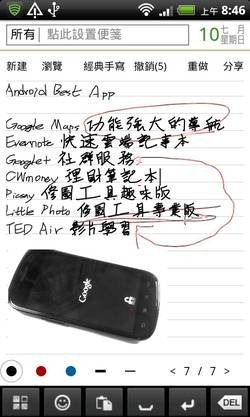 上午 8:46
所有 點此設置便签 10 七月 星期日
新建 瀏覽 經典手寫 撤銷(5) 重做 分享
Android Best App
Google Maps 功能强大的導航
Evernote 快速雲端記事本
Google+ 社群服務
CWmoney 理財筆記本
Picsay 修圖工具趣味版
Little Photo 修圖工具專業版
TED Air 影片學習
Google
< 7 / 7 >
DEL